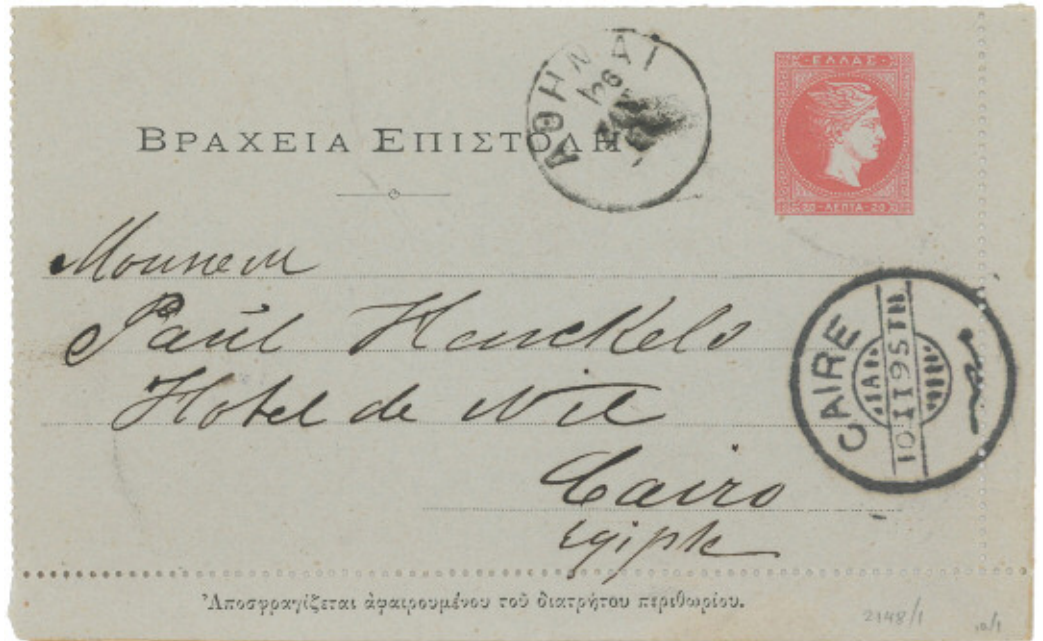 ΕΛΛΑΣ
ΑΘΗΝΑΙ
26
ΒΡΑΧΕΙΑ ΕΠΙΣΤΟΛΗ
20 - ΛΕΠΤΑ - 20
Monsieur
Paul Henckels
Hotel de Nil
Cairo
Egipte
CAIRE
10 II 95 T II
Ἀποσφραγίζεται ἀφαιρουμένου τοῦ διατρήτου περιθωρίου.
2148/1